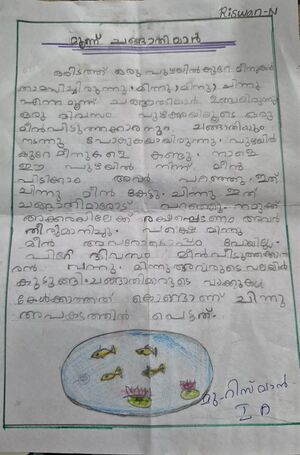 Riswan-N
മൂന്ന് ചങ്ങാതിമാർ
ഒരിടത്ത് ഒരു പുഴയിൽ കുറേ മീനുകൾ
താമസിച്ചിരുന്നു. മിന്നു, (മിനു) ചിന്നു
എന്ന മൂന്ന് ചങ്ങാതിമാർ ഉണ്ടായിരുന്നു
ഒരു ദിവസം പുഴക്കരയിലൂടെ ഒരു
മീൻപിടുത്തക്കാരനും ചങ്ങാതിയും
നടന്നു പോകുകയായിരുന്നു. പുഴയിൽ
കുറേ മീനുകളെ കണ്ടു. നാളെ
ഈ പുഴയിൽ നിന്ന് മീൻ
പിടിക്കാം അവർ പറഞ്ഞു. ഇത്
ചിന്നു മീൻ കേട്ടു. ചിന്നു ഇത്
ചങ്ങാതിമാരോട് പറഞ്ഞു. നമുക്ക്
അക്കരയിലേക്ക് രക്ഷപ്പെടണം അവർ
തീരുമാനിച്ചു. പക്ഷെ മിന്നു
മീൻ അവരോടൊപ്പം പോയില്ല.
പിറ്റേ ദിവസം മീൻപിടുത്തക്കാ
രൻ വന്നു. മിന്നു അവരുടെ വലയിൽ
കുടുങ്ങി. ചങ്ങാതിമാരുടെ വാക്കുകൾ
കേൾക്കാത്തത് കൊണ്ടാണ് ചിന്നു
അപകടത്തിൽ പെട്ടത്.
മു. റിസ്വാൻ
I A